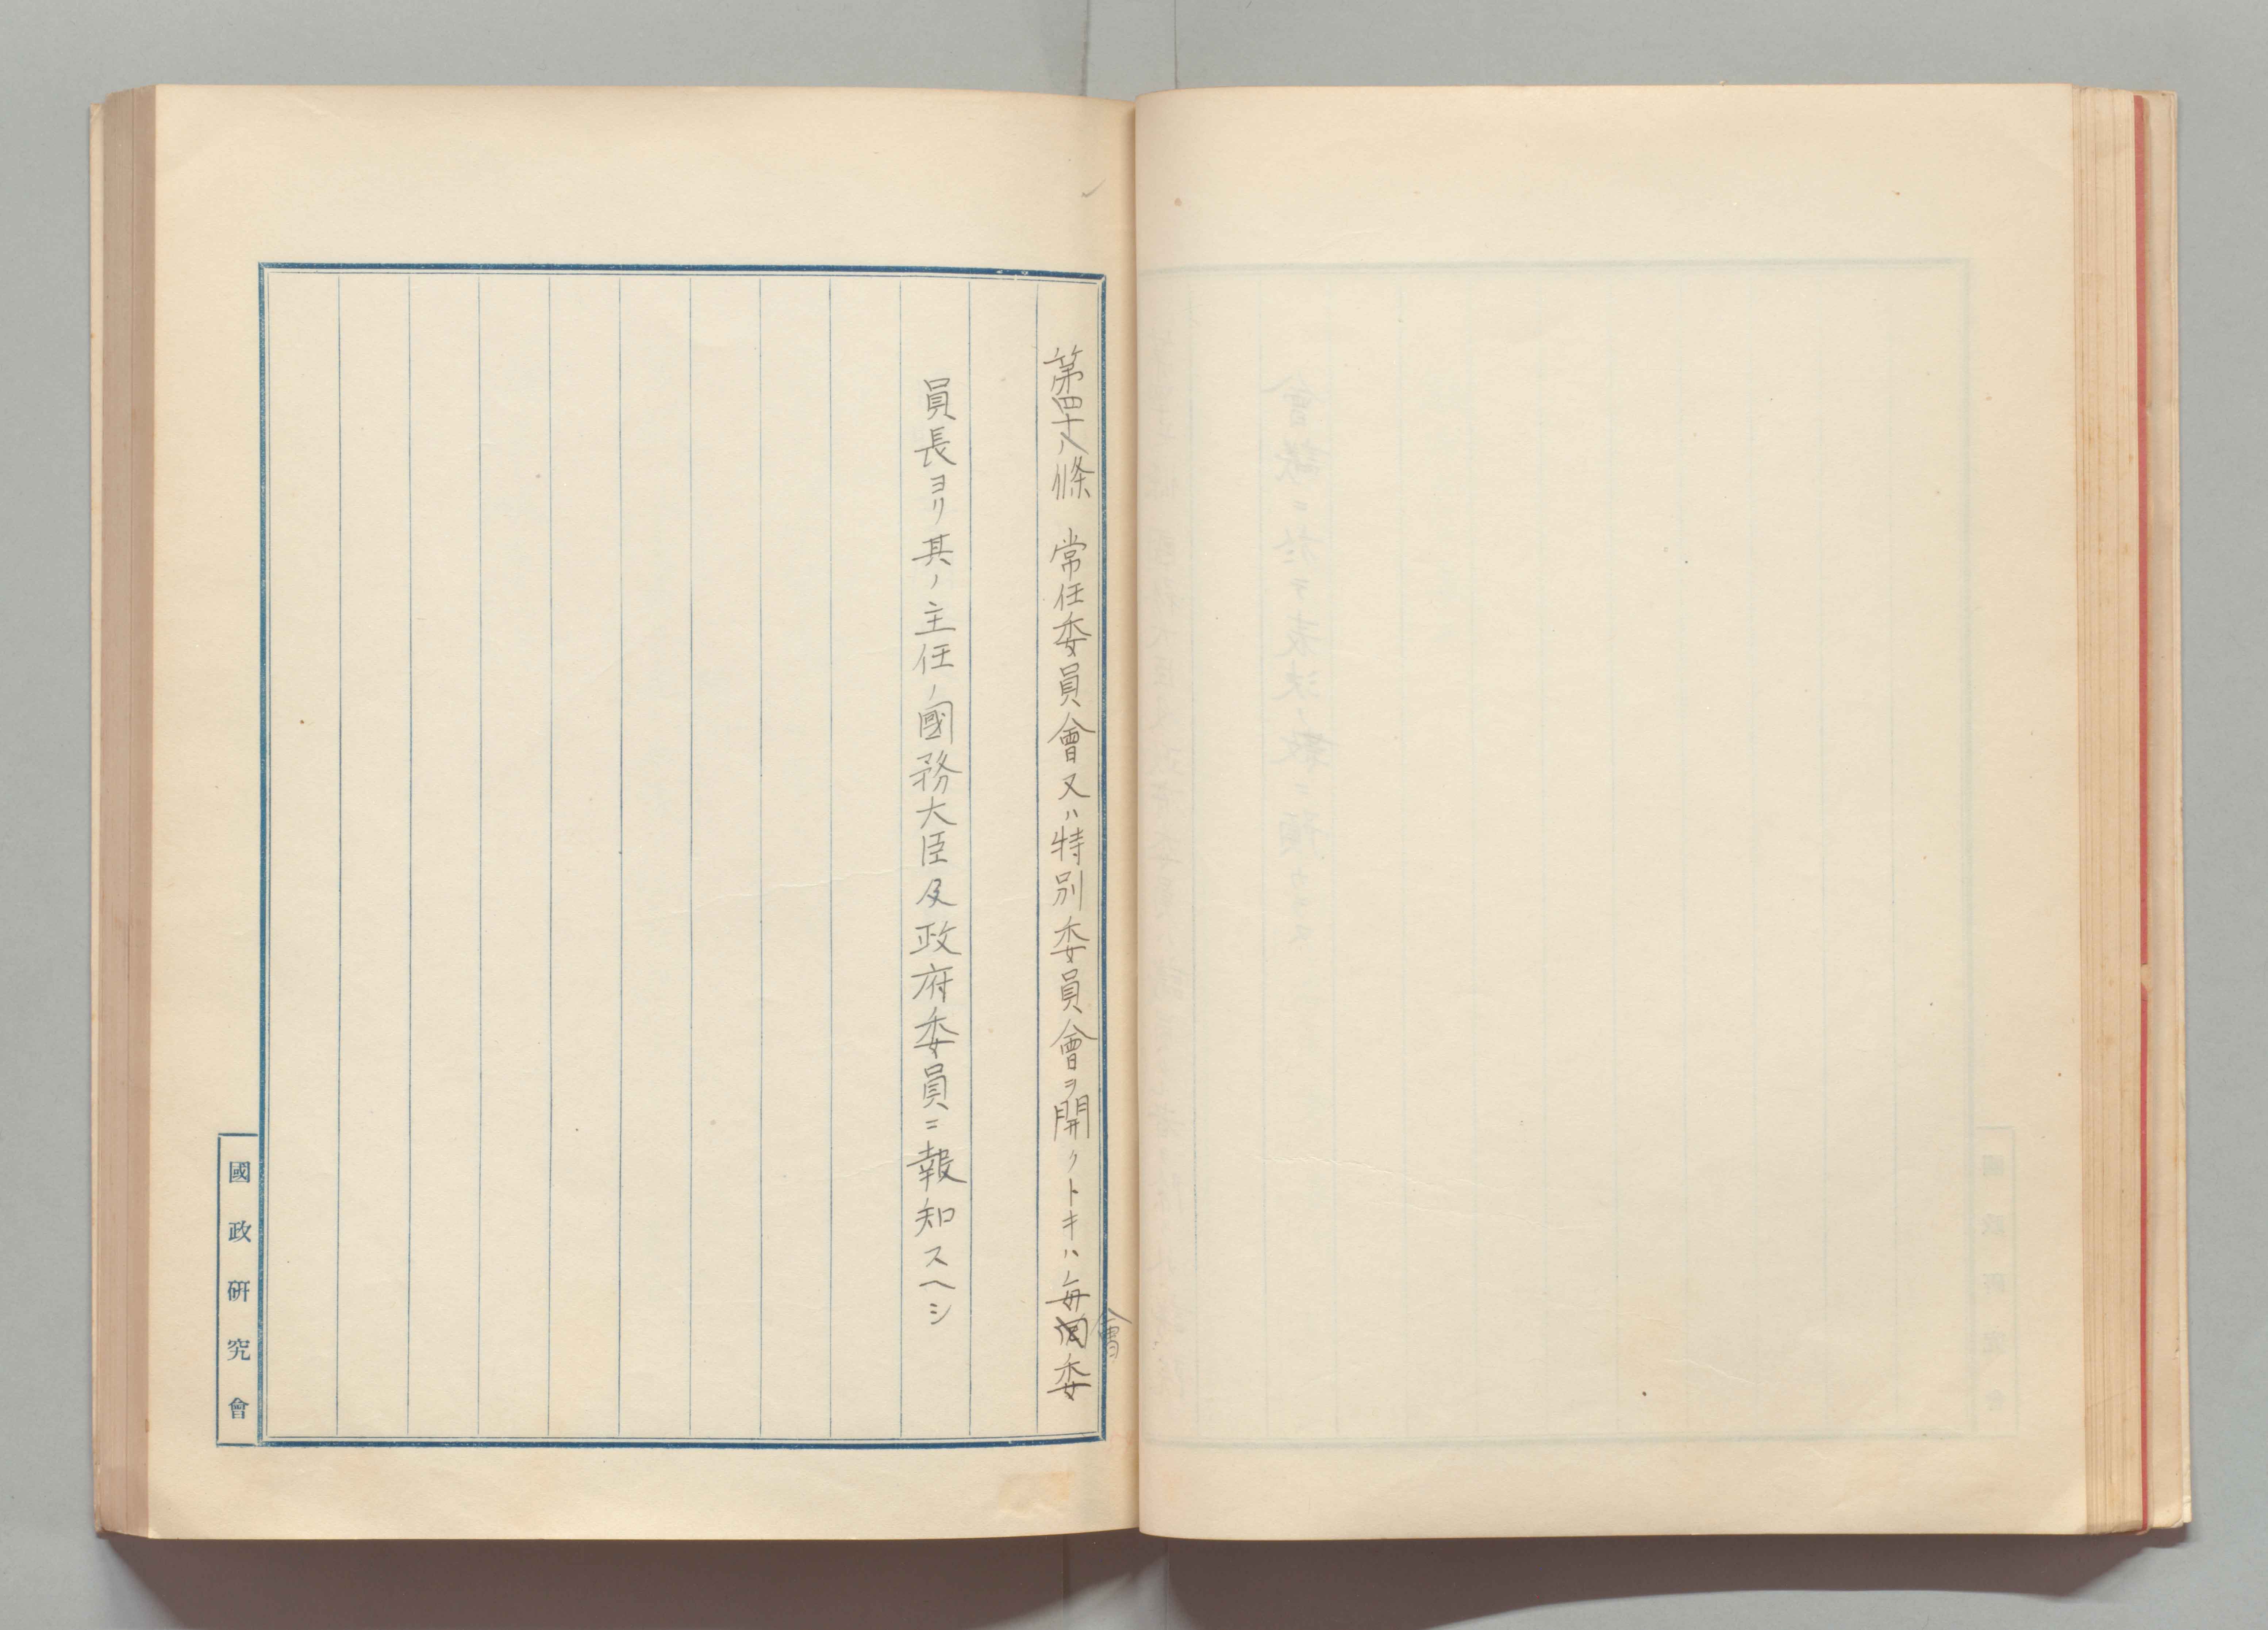 第四十八條　常任委員會又ハ特別委員會ヲ開クトキハ每會委
員長ヨリ其ノ主任ノ國務大臣及政府委員ニ報知スヘシ
國政研究會